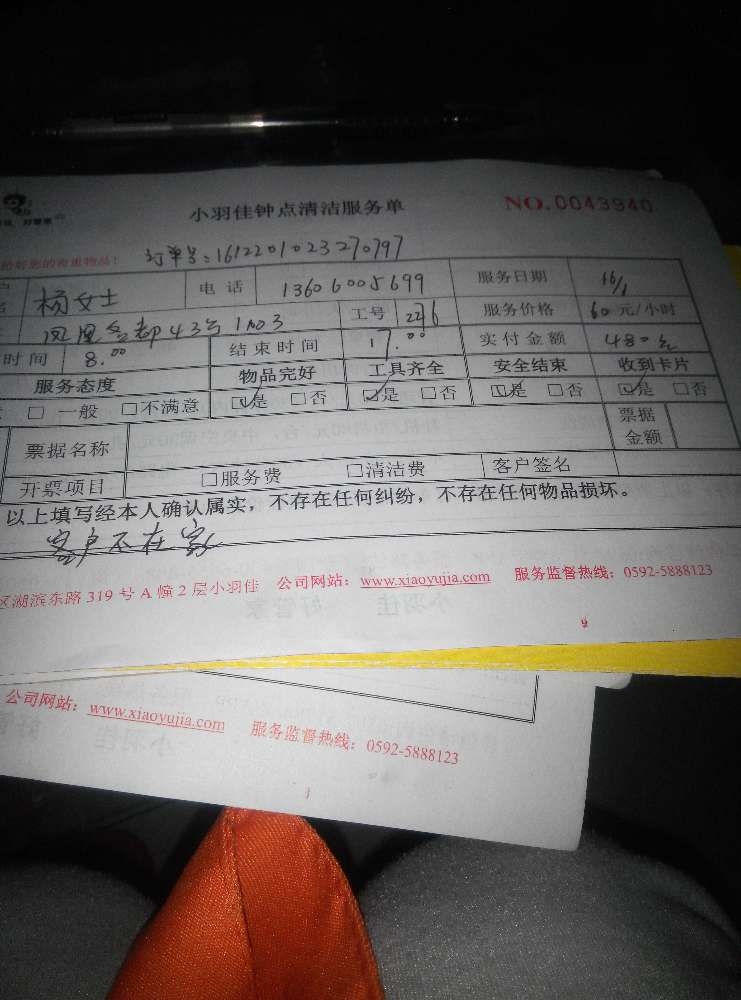 小羽佳钟点清洁服务单 NO.0043940
订单号:1612201023270797
杨女士 电话 13606005699 服务日期 16/1
凤凰名都43号1103 工号 2276 服务价格 60元/小时
时间 8.00 结束时间 17.00 实付金额 480元
服务态度 物品完好 工具齐全 安全结束 收到卡片
□一般 □不满意 ☑是 □否 ☑是 □否 ☑是 □否 ☑是 □否
票据名称 票据金额
开票项目 □服务费 □清洁费 客户签名
以上填写经本人确认属实,不存在任何纠纷,不存在任何物品损坏。
客户不在家
区湖滨东路319号A幢2层小羽佳 公司网站:www.xiaoyujia.com 服务监督热线:0592-5888123
公司网站:www.xiaoyujia.com 服务监督热线:0592-5888123